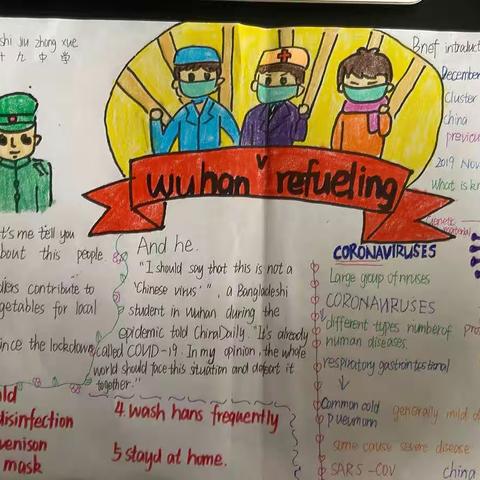 shi jiu zhong xue
十 九 中 学
wuhan refueling
Brief introduct
December
Cluster
china
previous
2019 Nov
what is k
Genetic
material
t's me tell you
bout this people
diers contribute to
getables for local
ince the lockdown,
And he.
"I should say that this is not a
'Chinese virus'", a Bangladeshi
student in wuhan during the
epidemic told ChinaDaily. "It's already
called COVID-19. In my opinion, the whole
world should face this situation and defeat it
together."
old
disinfection
venison
mask
4 wash hans frequently
5 stayd at home.
CORONAVIRUSES
Large group of nruses
CORONAVIRUSES
different types numberof
human diseases.
respiratory gastrointestional
Common cold generally mild d
pueumann
some cause severe disease
SARS-COV china